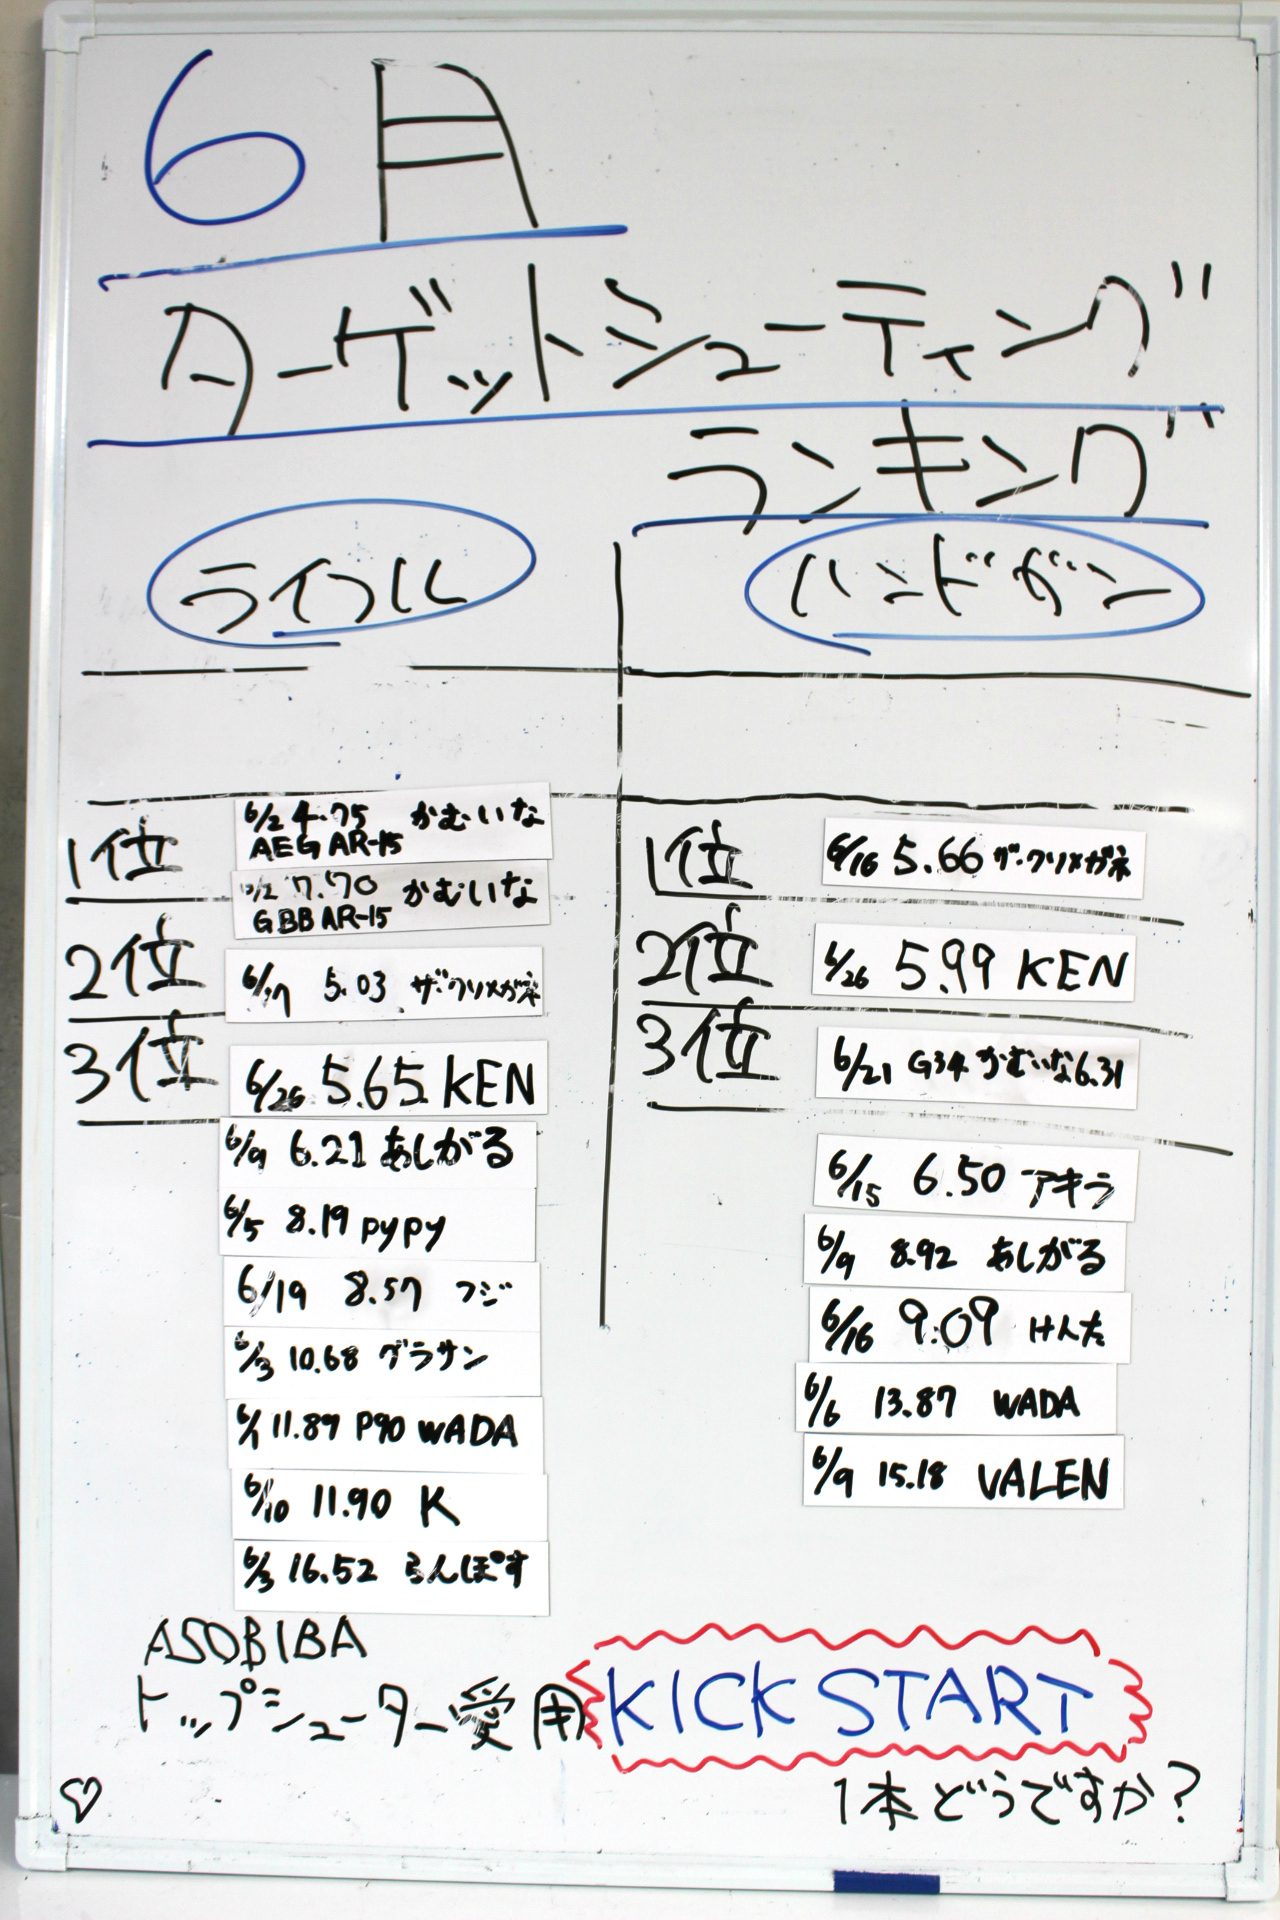 6月
ターゲットシューティング
ランキング
ライフル
1位
6/2 4.75 かむいな
AEG AR-15
7.70 かむいな
GBB AR-15
2位
6/17 5.03 ザ・クリメガネ
3位
6/26 5.65 KEN
6/9 6.21 あしがる
6/5 8.19 pypy
6/19 8.57 フジ
6/3 10.68 グラサン
6/1 11.89 P90 WADA
6/10 11.90 K
6/3 16.52 らんぽす
ハンドガン
1位
6/16 5.66 ザ・クリメガネ
2位
6/26 5.99 KEN
3位
6/21 G34 かむいな 6.31
6/15 6.50 アキラ
6/9 8.92 あしがる
6/16 9.09 けんた
6/6 13.87 WADA
6/9 15.18 VALEN
ASOBIBA
トップシューター愛用 KICK START
1本どうですか?